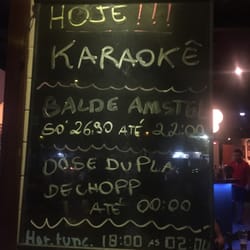 HOJE!!!
KARAOKÊ
BALDE AMSTEL
SÓ 26,90 ATÉ 22:00
DOSE DUPLA
DE CHOPP
ATÉ 00:00
Hor. func. 18:00 AS 02:00